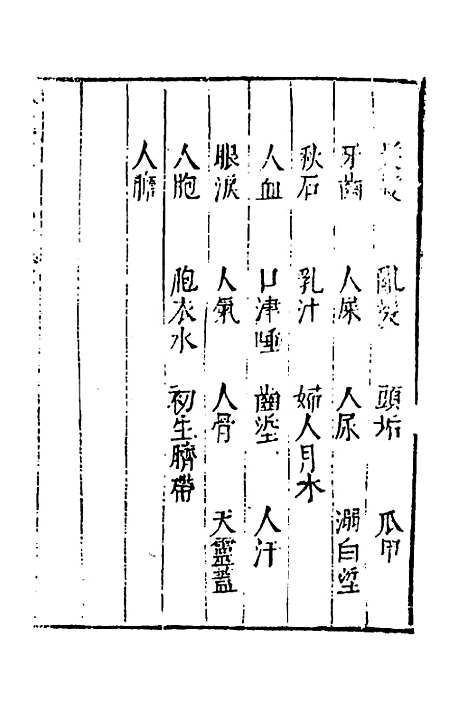 亂髮 頭垢 爪甲
牙齒 人屎 人尿 溺白垽
秋石 乳汁 婦人月水
人血 口津唾 齒垽 人汗
眼淚 人氣 人骨 天靈蓋
人胞 胞衣水 初生臍帶
人膽